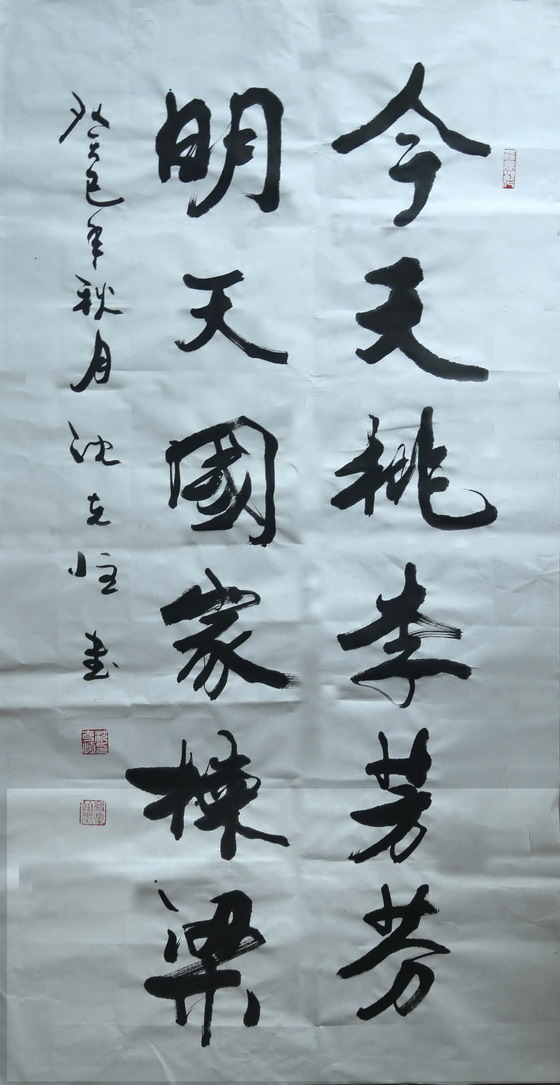 今天桃李芳芬
明天國家棟梁
癸巳年秋月 沈克 書